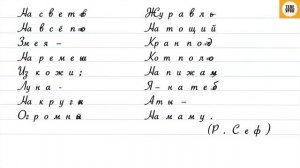 На свете
На всё по
Змея –
На ремеш
Из кожи;
Луна -
На кругл
Огромны
Журавль
На тощий
Кран под
Кот поло
На пижам
Я – на теб
А ты –
На маму.
(Р. Сеф)